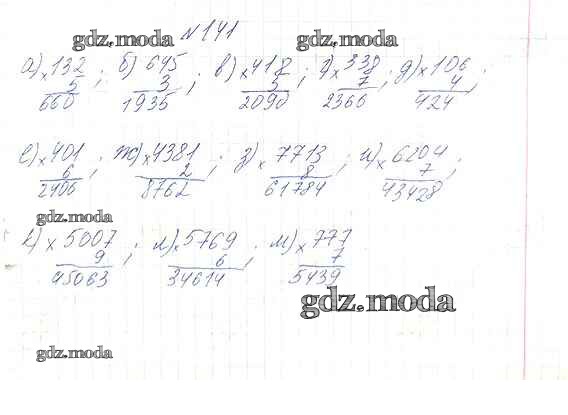 gdz.moda gdz.moda
№141
а) × 132 ; б) 645 ; в) × 418 ; г) × 338 ; д) × 106 ;
5 3 5 7 4
660 1935 2090 2366 424
е) × 401 ; ж) × 4381 ; з) × 7713 ; и) × 6204 ;
6 2 8 7
2406 8762 61784 43428
gdz.moda gdz.moda
к) × 5007 ; л) × 5769 ; м) × 777
9 6 7
45063 34614 5439
gdz.moda
gdz.moda